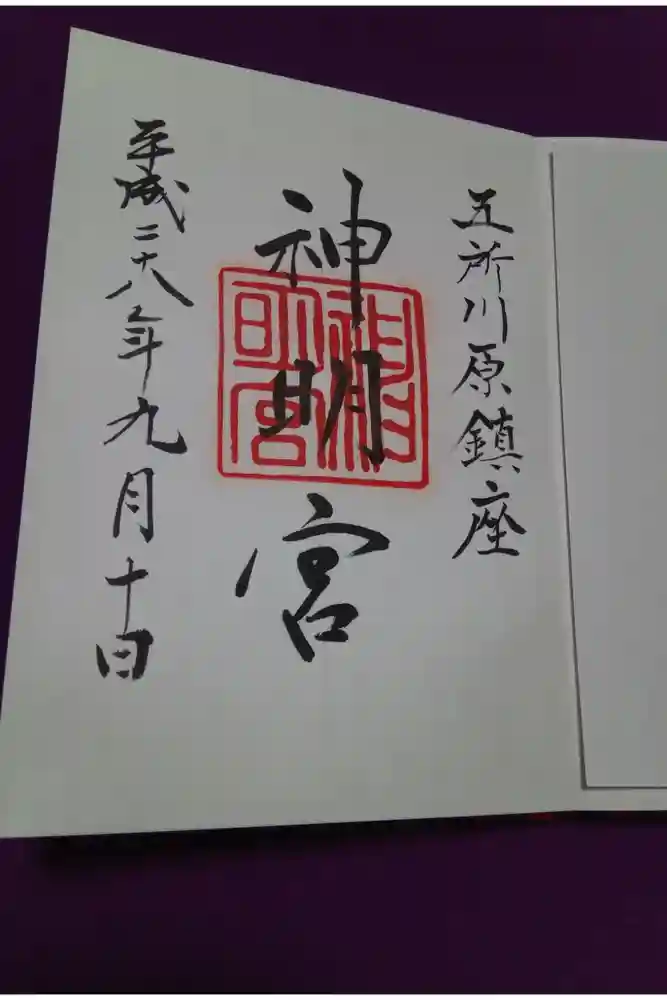 五所川原鎮座
神明宮
神明宮
平成二十八年九月十日